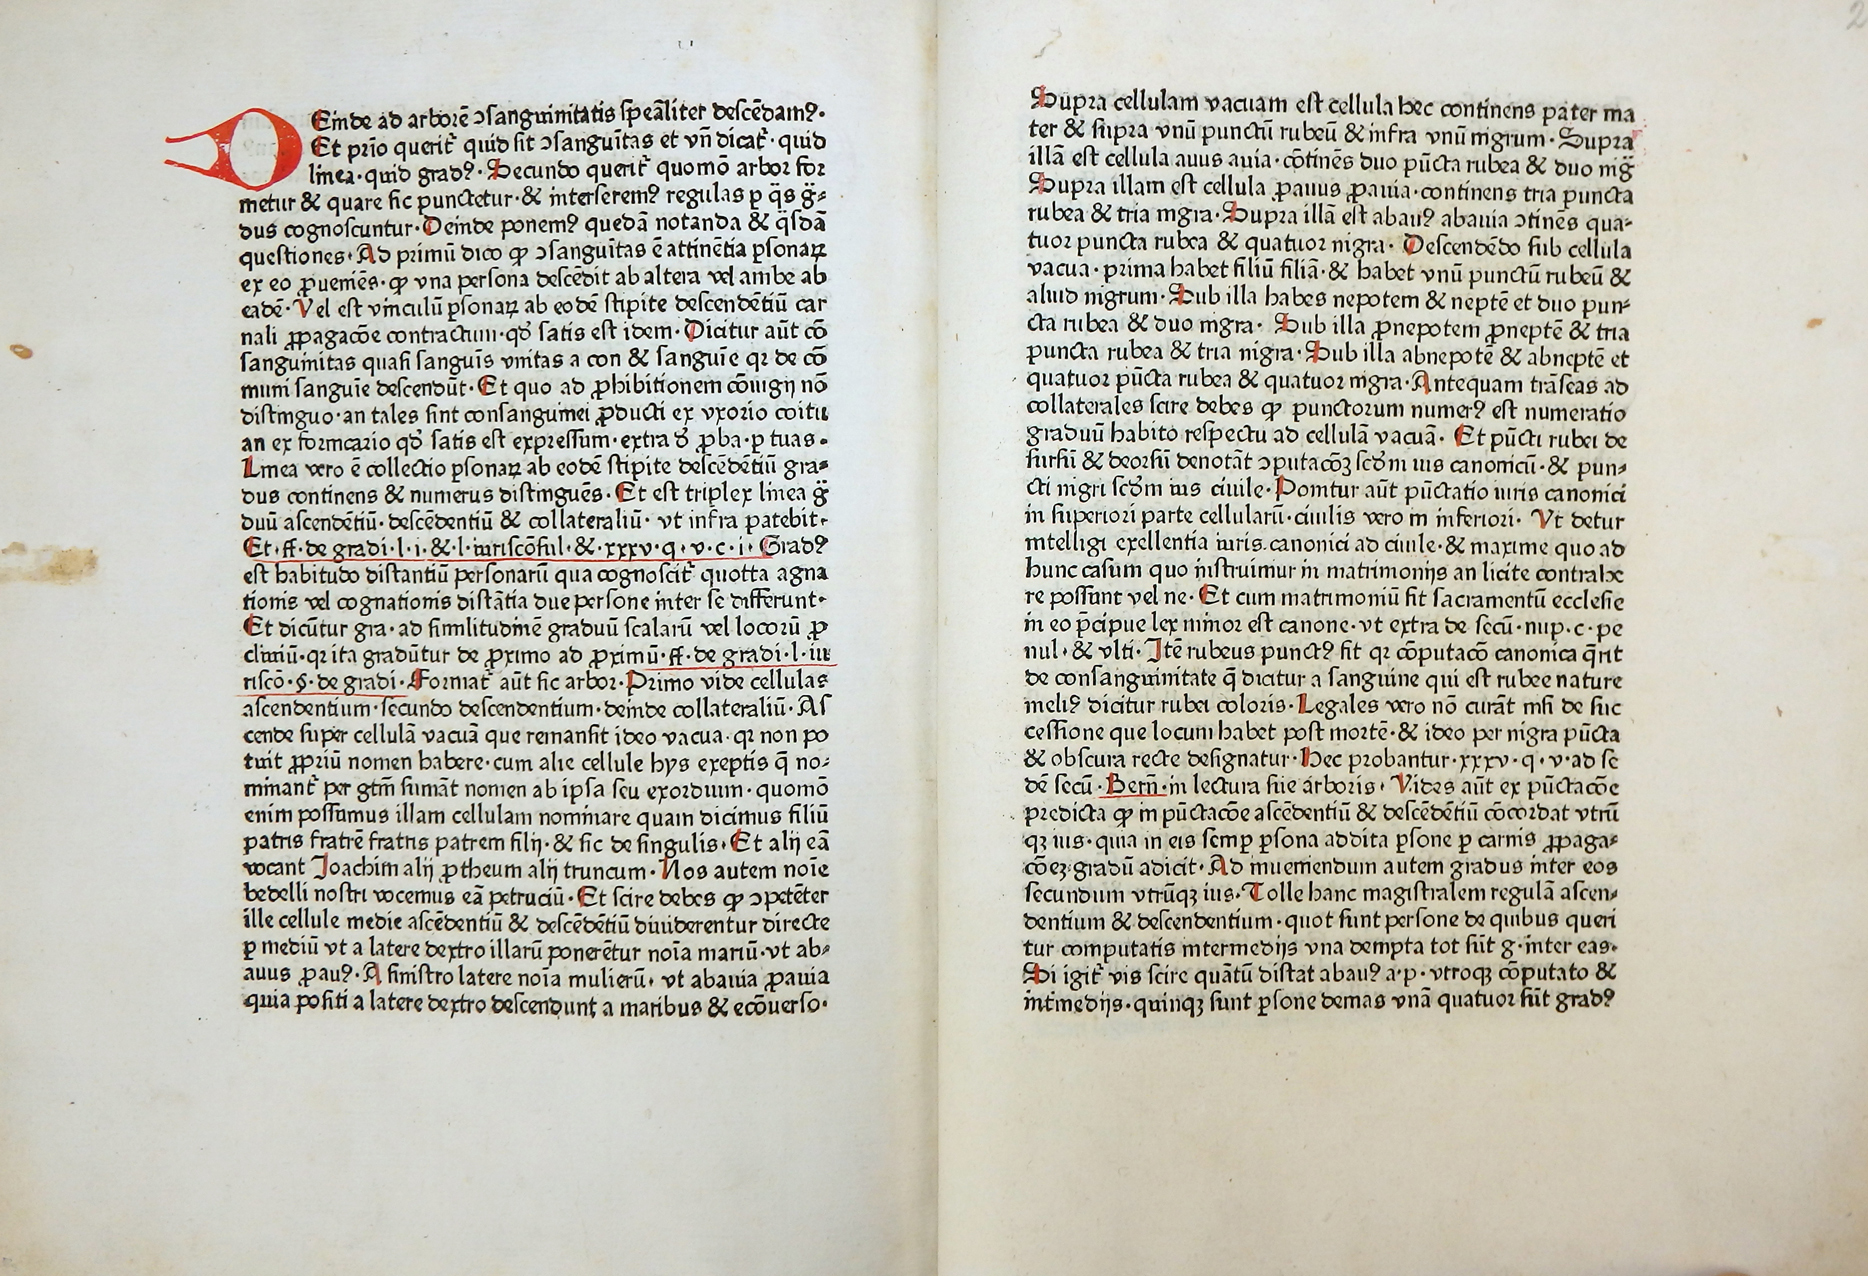 DEinde ad arborē ↄsanguinitatis speāliter descēdamꝰ·
Et prīo querit᷑ quid sit ↄsanguītas et vn̄ dicat᷑· quid
linea·quid gradꝰ· Secundo querit᷑ quomō arbor for
metur & quare sic punctetur·& interseremꝰ regulas ꝑ q̄s g̈⸗
dus cognoscuntur·Deinde ponemꝰ quedā notanda & q̈sdā
questiones·Ad primū dico ꝙ ↄsanguītas ē attinētia ꝑsonaꝝ
ex eo ꝓueniēs·ꝙ vna persona descēdit ab altera vel ambe ab
eadē·Vel est vinculū ꝑsonaꝝ ab eodē stipite descendētiū car
nali ꝓpagacōe contractum·qd̓ satis est idem·Dicitur aūt cō
sanguinitas quasi sanguīs vnitas a con & sanguīe qꝛ de cō
muni sanguīe descendūt·Et quo ad ꝓhibitionem cōiugij nō
distinguo·an tales sint consanguinei ꝓducti ex vxorio coitu
an ex fornicario qd̓ satis est expressum·extra d̓ ꝓba·ꝑ tuas·
Linea vero ē collectio ꝑsonaꝝ ab eodē stipite descēdētiū gra⸗
dus continens & numerus distinguēs·Et est triplex linea g̈
duū ascendētiū·descēdentiū & collateraliū· vt infra patebit·
Et·ff·de gradi·l·i·&·l·iuriscōsul·&·xxxv·q·v·c·i·Gradꝰ
est habitudo distantiū personarū qua cognoscit᷑ quotta agna
tionis vel cognationis distātia due persone inter se differunt·
Et dicūtur gra·ad similitudinē graduū scalarū vel locorū ꝓ
cliuiū·qꝛ ita gradūtur de ꝓximo ad ꝓximū·ff·de gradi·l·iu
riscō·§·de gradi·Format᷑ aūt sic arbor·Primo vide cellulas
ascendentium·secundo descendentium·deinde collateraliū·As
cende super cellulā vacuā que remansit ideo vacua·qꝛ non po
tuit ꝓpriū nomen habere·cum alie cellule hys exeptis q̄ no⸗
minant᷑ per gt̄m sumāt nomen ab ipsa seu exordium·quomō
enim possumus illam cellulam nominare quam dicimus filiū
patris fratrē fratris patrem filij·& sic de singulis·Et alij eā
vocant Joachim alij ꝓtheum alij truncum·Nos autem noīe
bedelli nostri vocemus eā petruciū·Et scire debes ꝙ ↄpetēter
ille cellule medie ascēdentiū & descēdētiū diuiderentur directe
ꝑ mediū vt a latere dextro illarū ponerētur noīa mariū·vt ab⸗
auus ꝓauꝰ·A sinistro latere noīa mulierū· vt abauia ꝓauia
quia positi a latere dextro descendunt a maribus & ecōuerso·
Supra cellulam vacuam est cellula hec continens pater ma
ter & supra vnū punctū rubeū & infra vnū nigrum·Supra
illā est cellula auus auia·cōtinēs duo pūcta rubea & duo nig̈
Supra illam est cellula ꝓauus ꝓauia·continens tria puncta
rubea & tria nigra·Supra illā est abauꝰ abauia ↄtinēs qua⸗
tuor puncta rubea & quatuor nigra· Descendēdo sub cellula
vacua·prima habet filiū filiā·& habet vnū punctū rubeū &
aliud nigrum·Sub illa habes nepotem & neptē et duo pun⸗
cta rubea & duo nigra· Sub illa ꝓnepotem ꝓneptē & tria
puncta rubea & tria nigra·Sub illa abnepotē & abneptē et
quatuor pūcta rubea & quatuor nigra·Antequam trāseas ad
collaterales scire debes ꝙ punctorum numerꝰ est numeratio
graduū habito respectu ad cellulā vacuā· Et pūcti rubei de
sursū & deorsū denotāt ↄputacōꝫ scd̓m ius canonicū·& pun⸗
cti nigri scd̓m ius ciuile·Ponitur aūt pūctatio iuris canonici
in superiori parte cellularū·ciuilis vero in inferiori· Vt detur
intelligi exellentia iuris.canonici ad ciuile·& maxime quo ad
hunc casum quo instruimur in matrimonijs an licite contrahe
re possunt vel ne·Et cum matrimoniū sit sacramentū ecclesie
in eo p̄cipue lex minor est canone·vt extra de secū·nup·c·pe
nul·& vlti·Itē rubeus punctꝰ sit qꝛ cōputacō canonica q̄rit
de consanguinitate q̄ dicitur a sanguine qui est rubee nature
meliꝰ dicitur rubei coloris·Legales vero nō curāt nisi de suc
cessione que locum habet post mortē·& ideo per nigra pūcta
& obscura recte designatur·Hec probantur·xxxv·q·v·ad se
dē secū·Bern̄·in lectura sue arboris· Vides aūt ex pūctacōe
predicta ꝙ in pūctacōe ascēdentiū & descēdētiū cōcordat vtrū
qꝫ ius·quia in eis semꝑ ꝑsona addita ꝑsone ꝑ carnis ꝓpaga⸗
cōeꝫ·gradū adicit·Ad inueniendum autem gradus inter eos
secundum vtrūqꝫ ius·Tolle hanc magistralem regulā ascen⸗
dentium & descendentium·quot sunt persone de quibus queri
tur computatis intermedijs vna dempta tot sūt g·inter eas·
Si igit᷑ vis scire quātū distat abauꝰ a·p·vtroqꝫ cōputato &
int᷑medijs·quinqꝫ sunt ꝑsone demas vnā quatuor sūt gradꝰ
2